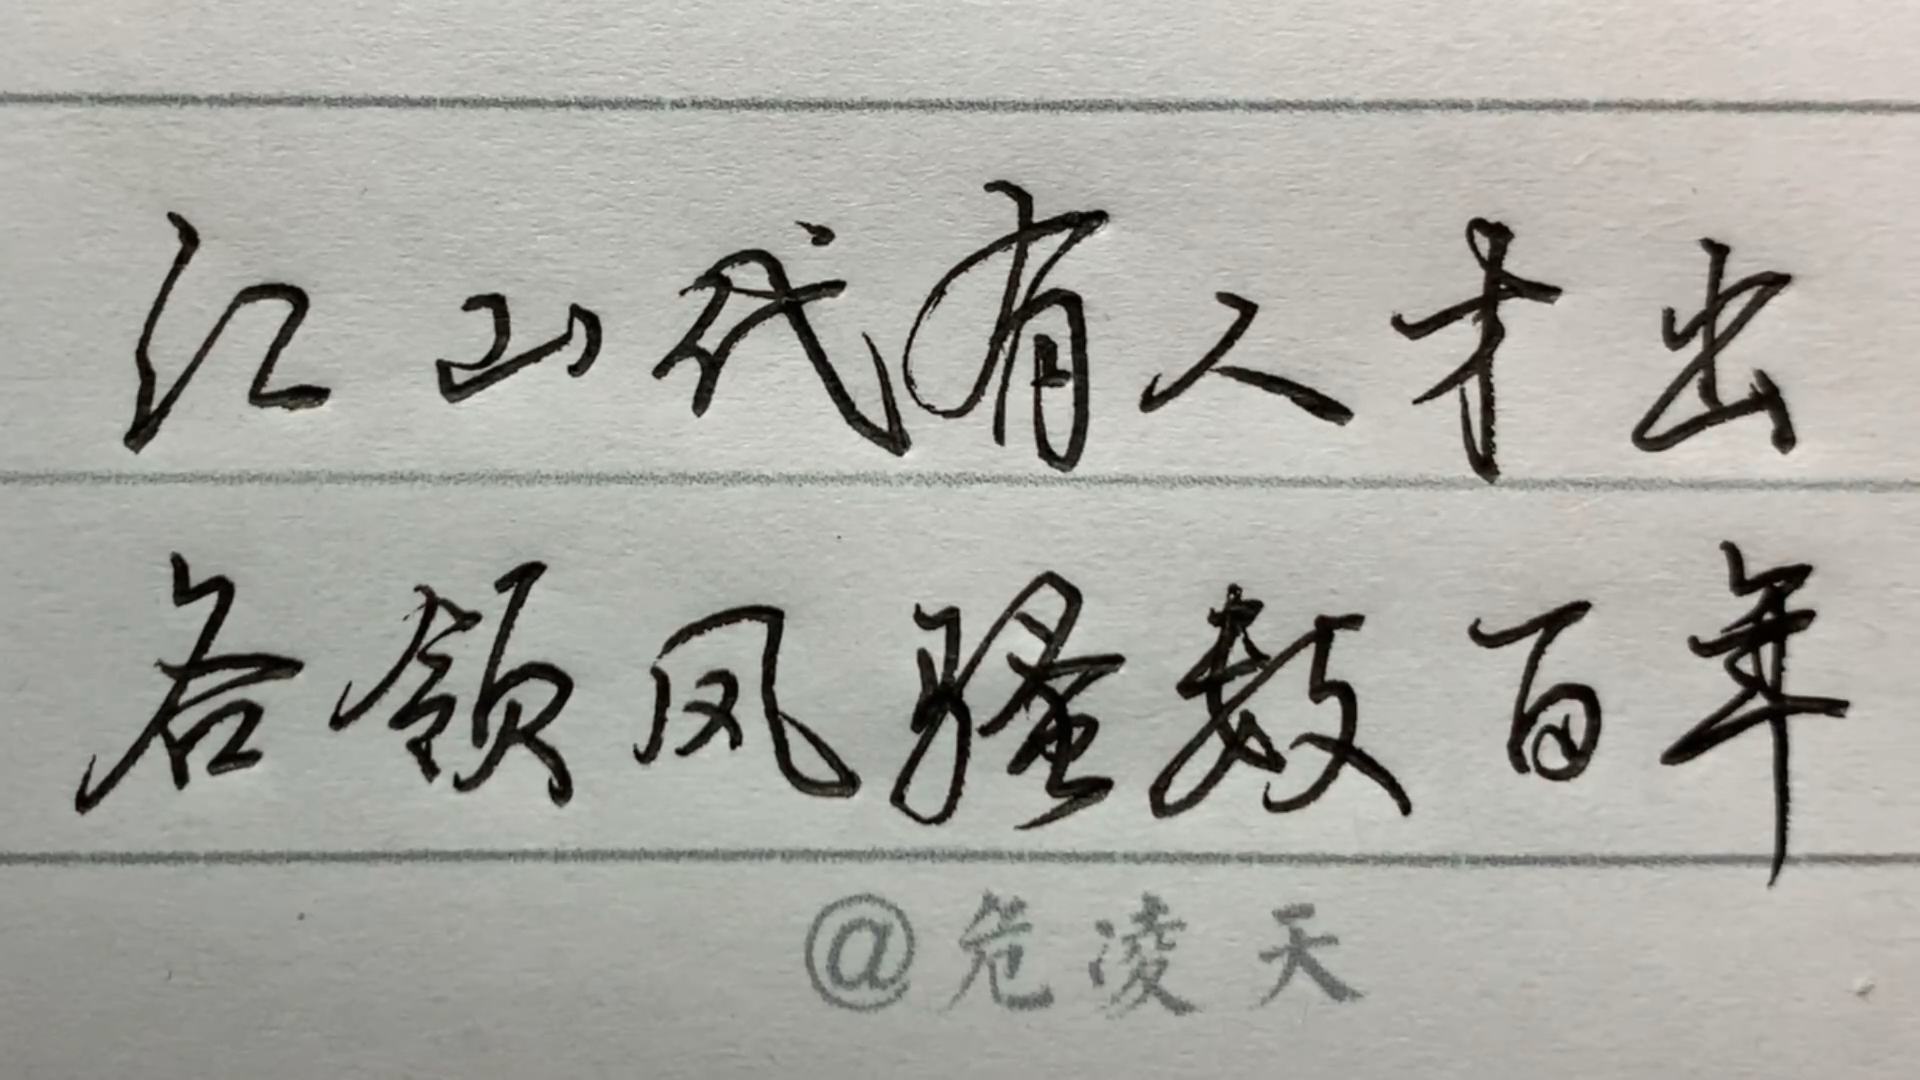 江山代有人才出
各领风骚数百年
@危凌天